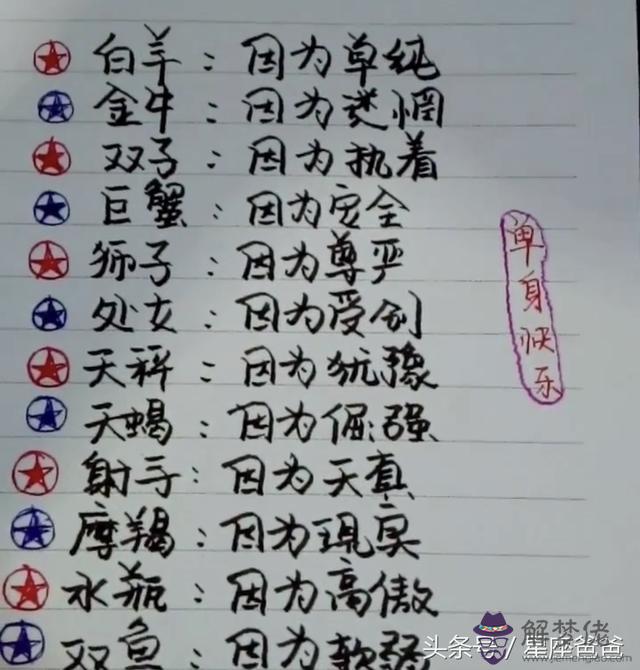 白羊：因为单纯
金牛：因为迷惘
双子：因为执着
巨蟹：因为安全
狮子：因为尊严
处女：因为受创
天秤：因为犹豫
天蝎：因为倔强
射手：因为天真
摩羯：因为现实
水瓶：因为高傲
双鱼：因为软弱
单身快乐
头条号／星座爸爸
解梦佬
www.jiemenglao.com